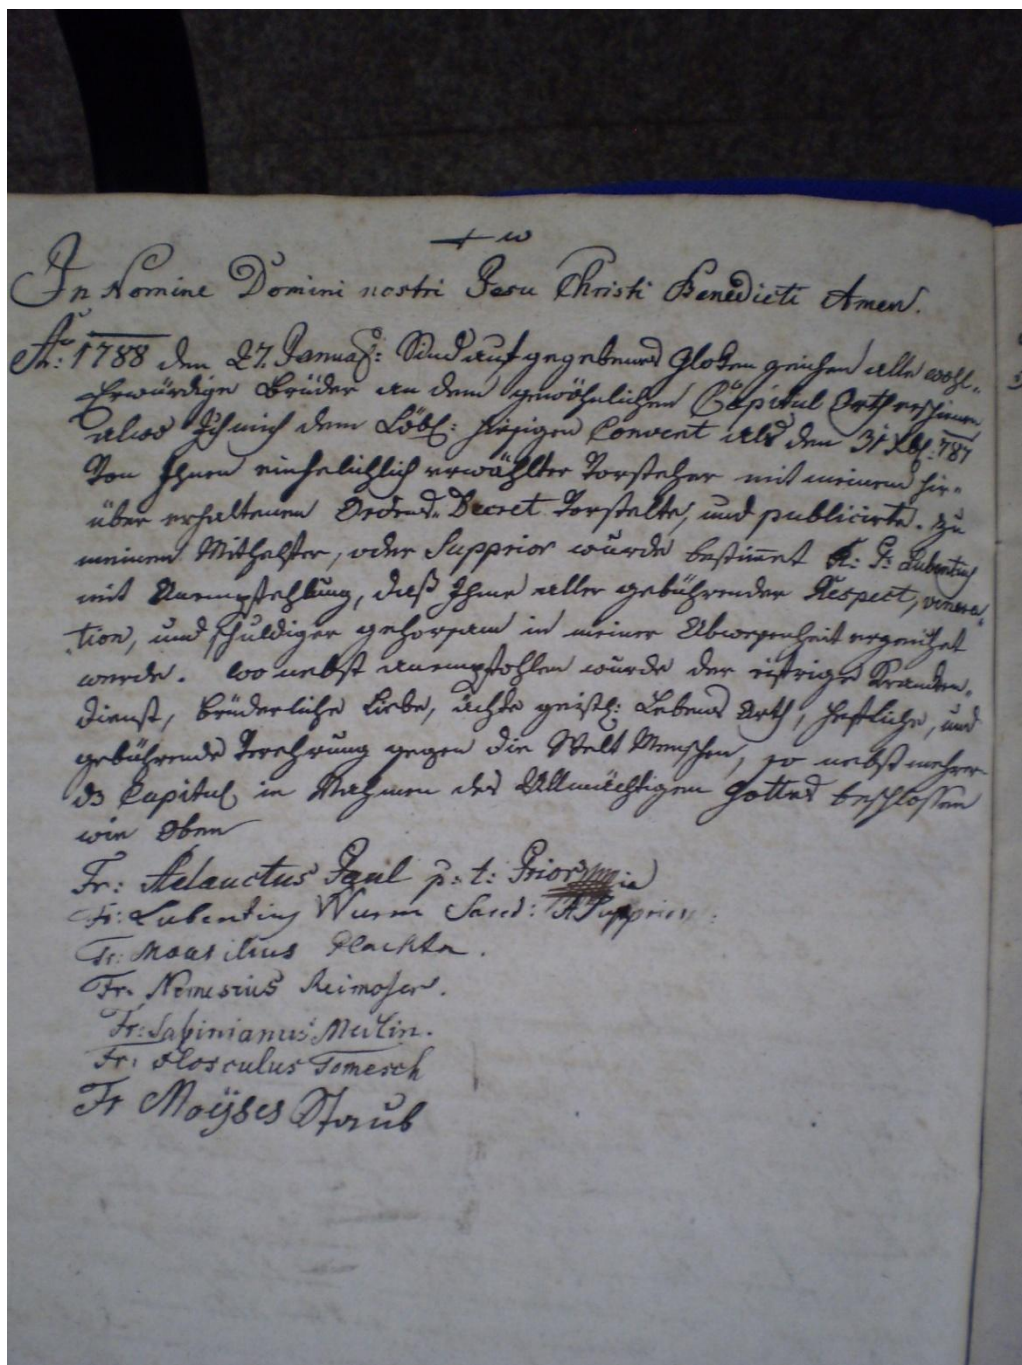 In Nomine Domini nostri Jesu Christi Benedicti Amen.
Ao: 1788 den 27. Januar: Sind auf gegebenes Gloken zeichen alle wohl-
Erwürdige Brüder an dem gewöhnlichen Capitul Orth erschinen
alwo Ich mich dem Löbl: hiesigen Convent als den 31 Xbr: 787
Von Ihnen einhelichlich erwählter Vorsteher mit meinem hir-
über erhaltenen Ordens-Decret Vorstelte, und publicirte. Zu
meinem Mithelfer, oder Supprior wurde bestimet P: Lubentius
mit Anempfehlung, daß Ihme aller gebührender Respect, venera-
tion, und schuldiger gehorsam in meiner Abwesenheit erzeuhet
werde. wo nebst anempfohlen wurde der eifrige Kranken-
dienst, brüderliche Liebe, ächte geistl: Lebens Arth, höfliche, und
gebührende Verehrung gegen die Welt Menschen, so nebst mehrer
Capitul in Nahmen des Allmächtigen Gottes beschlossen
wie Oben
Fr: Adauctus Paul p: t: Prior
Fr: Lubentius Wurm Sacd: Supprior
Fr: Marsilius Plachta.
Fr. Nemesius Reimoser.
Fr: Sabinianus Meilin.
Fr: Flosculus Tomesch
Fr Moÿses Staub